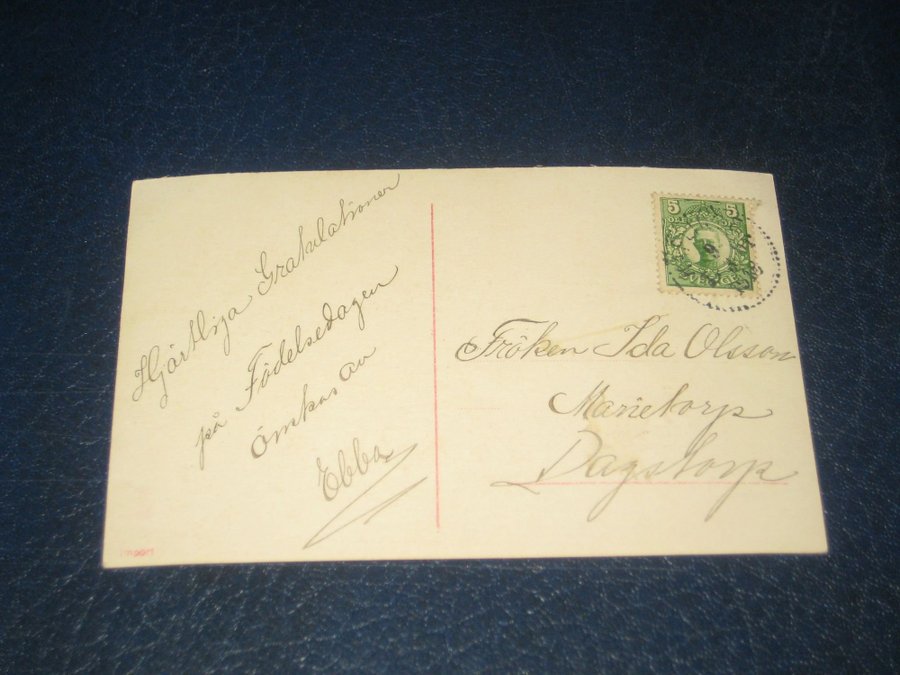 Hjärtliga Gratulationer
på Födelsedagen
önskas av
Ebba
5 5
Fröken Ida Olsson
Marietorp
Dagstorp